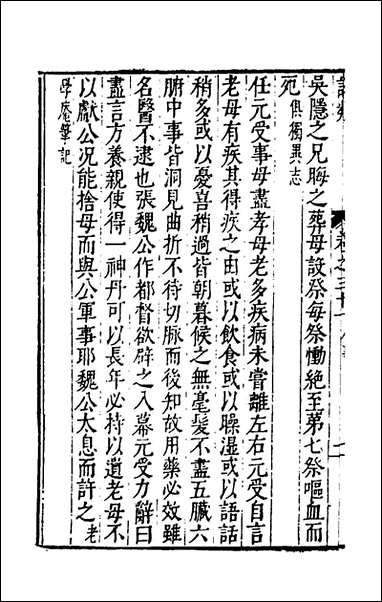 吳隱之兄晦之葬母設祭每祭慟絕至第七祭嘔血而
死俱獨異志
任元受事母盡孝母老多疾病未嘗離左右元受自言
老母有疾其得疾之由或以飲食或以臊湿或以語話
稍多或以憂喜稍過皆朝暮候之無毫髮不盡五臟六
腑中事皆洞見曲折不待切脉而後知故用藥必效雖
名醫不逮也張魏公作都督欲辟之入幕元受力辭曰
盡言方養親使得一神丹可以長年必持以遺老母不
以獻公况能捨母而與公軍事耶魏公太息而許之老
學庵筆記